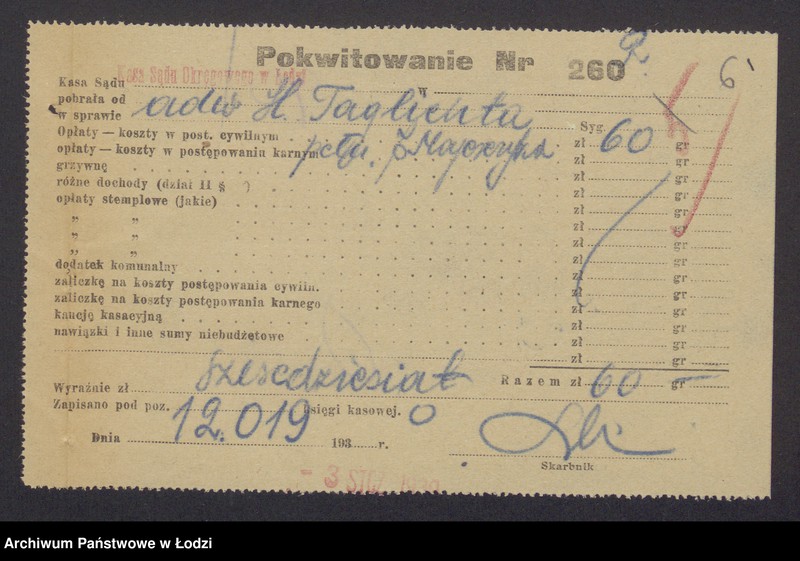 Pokwitowanie Nr 260
6
Kasa Sądu Okręgowego w Łodzi w
pobrała od adw. H. Taglichta
w sprawie Syg.
Opłaty — koszty w post. cywilnym zł 60 gr
opłaty — koszty w postępowaniu karnym zł gr
grzywnę zł gr
różne dochody (dział II § ) zł gr
opłaty stemplowe (jakie) zł gr
„ „ zł gr
„ „ zł gr
„ „ zł gr
dodatek komunalny zł gr
zaliczkę na koszty postępowania cywiln. zł gr
zaliczkę na koszty postępowania karnego zł gr
kaucję kasacyjną zł gr
nawiązki i inne sumy niebudżetowe zł gr
zł gr
Wyraźnie zł sześćdziesiąt Razem zł 60 gr —
Zapisano pod poz. 12.019 księgi kasowej.
Dnia 193 r.
Skarbnik
- 3 STCZ. 1939
Archiwum Państwowe w Łodzi